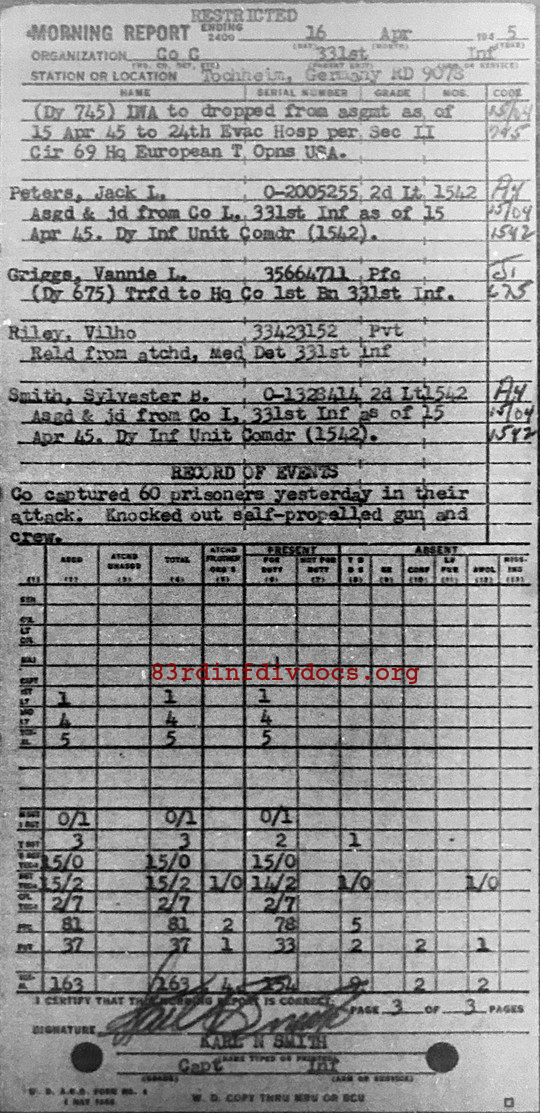 RESTRICTED
MORNING REPORT ENDING 2400 16 Apr 194 5
ORGANIZATION Co G 331st Inf
STATION OR LOCATION Tochheim, Germany RD 9078
NAME SERIAL NUMBER GRADE MOS. CODE
(Dy 745) LWA to dropped from asgmt as of 15/04
15 Apr 45 to 24th Evac Hosp per Sec II 745
Cir 69 Hq European T Opns USA.
Peters, Jack L. O-2005255 2d Lt 1542
Asgd & jd from Co L, 331st Inf as of 15 15/04
Apr 45. Dy Inf Unit Comdr (1542). 1542
Griggs, Vannie L. 35664711 Pfc
(Dy 675) Trfd to Hq Co 1st Bn 331st Inf. 675
Riley, Vilho 33423152 Pvt
Reld from atchd, Med Det 331st Inf
Smith, Sylvester B. O-1328414 2d Lt 1542
Asgd & jd from Co I, 331st Inf as of 15 15/04
Apr 45. Dy Inf Unit Comdr (1542). 1542
RECORD OF EVENTS
Co captured 60 prisoners yesterday in their
attack. Knocked out self-propelled gun and
crew.
PRESENT ABSENT
ASGD ATCHD UNASGD TOTAL ATCHD FR OTHER ORG'S FOR DUTY NOT FOR DUTY SK CONF LV FUR AWOL MISSING
(1) (2) (3) (4) (5) (6) (7) (8) (9) (10) (11) (12) (13)
GEN
COL
LT COL
MAJ
83rdinfdivdocs.org
CAPT
1ST LT 1 1 1
2ND LT 4 4 4
5 5 5
0/1 0/1 0/1
T SGT 3 3 2 1
15/0 15/0 15/0
15/2 15/2 1/0 14/2 1/0 1/0
2/7 2/7 2/7
PFC 81 81 2 78 5
PVT 37 37 1 33 2 2 1
163 163 4 154 9 2 2
I CERTIFY THAT THIS MORNING REPORT IS CORRECT. PAGE 3 OF 3 PAGES
SIGNATURE
KARL N SMITH
(NAME TYPED OR PRINTED)
Capt Inf
(GRADE) (ARM OR SERVICE)
W. D. A.G.O. FORM NO. 1
W. D. COPY THRU MRU OR SCU